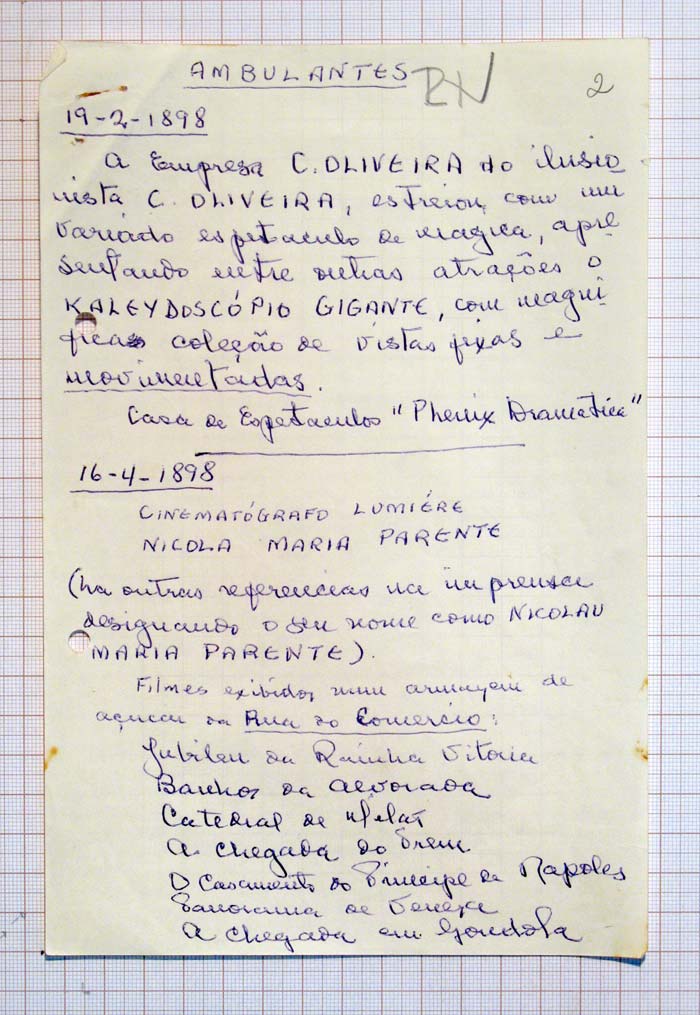 AMBULANTES RN 2
19-2-1898
A Empresa C. OLIVEIRA do ilusio
nista C. OLIVEIRA, estreiou, com um
variado espetaculo de magica, apre
sentando entre outras atrações o
KALEYDOSCÓPIO GIGANTE, com magni
ficas coleção de vistas fixas e
movimentadas.
Casa de Espetaculos "Phenix Dramatica"
16-4-1898
CINEMATÓGRAFO LUMIÉRE
NICOLA MARIA PARENTE
(ha outras referencias na imprensa
designando o seu nome como NICOLAU
MARIA PARENTE).
Filmes exibidos num armazem de
açucar da Rua do Comercio:
Jubileu da Rainha Vitoria
Banhos da Alvorada
Catedral de
A chegada do Trem
O Casamento do Principe de Napoles
Panorama de Veneza
A chegada em Gondola